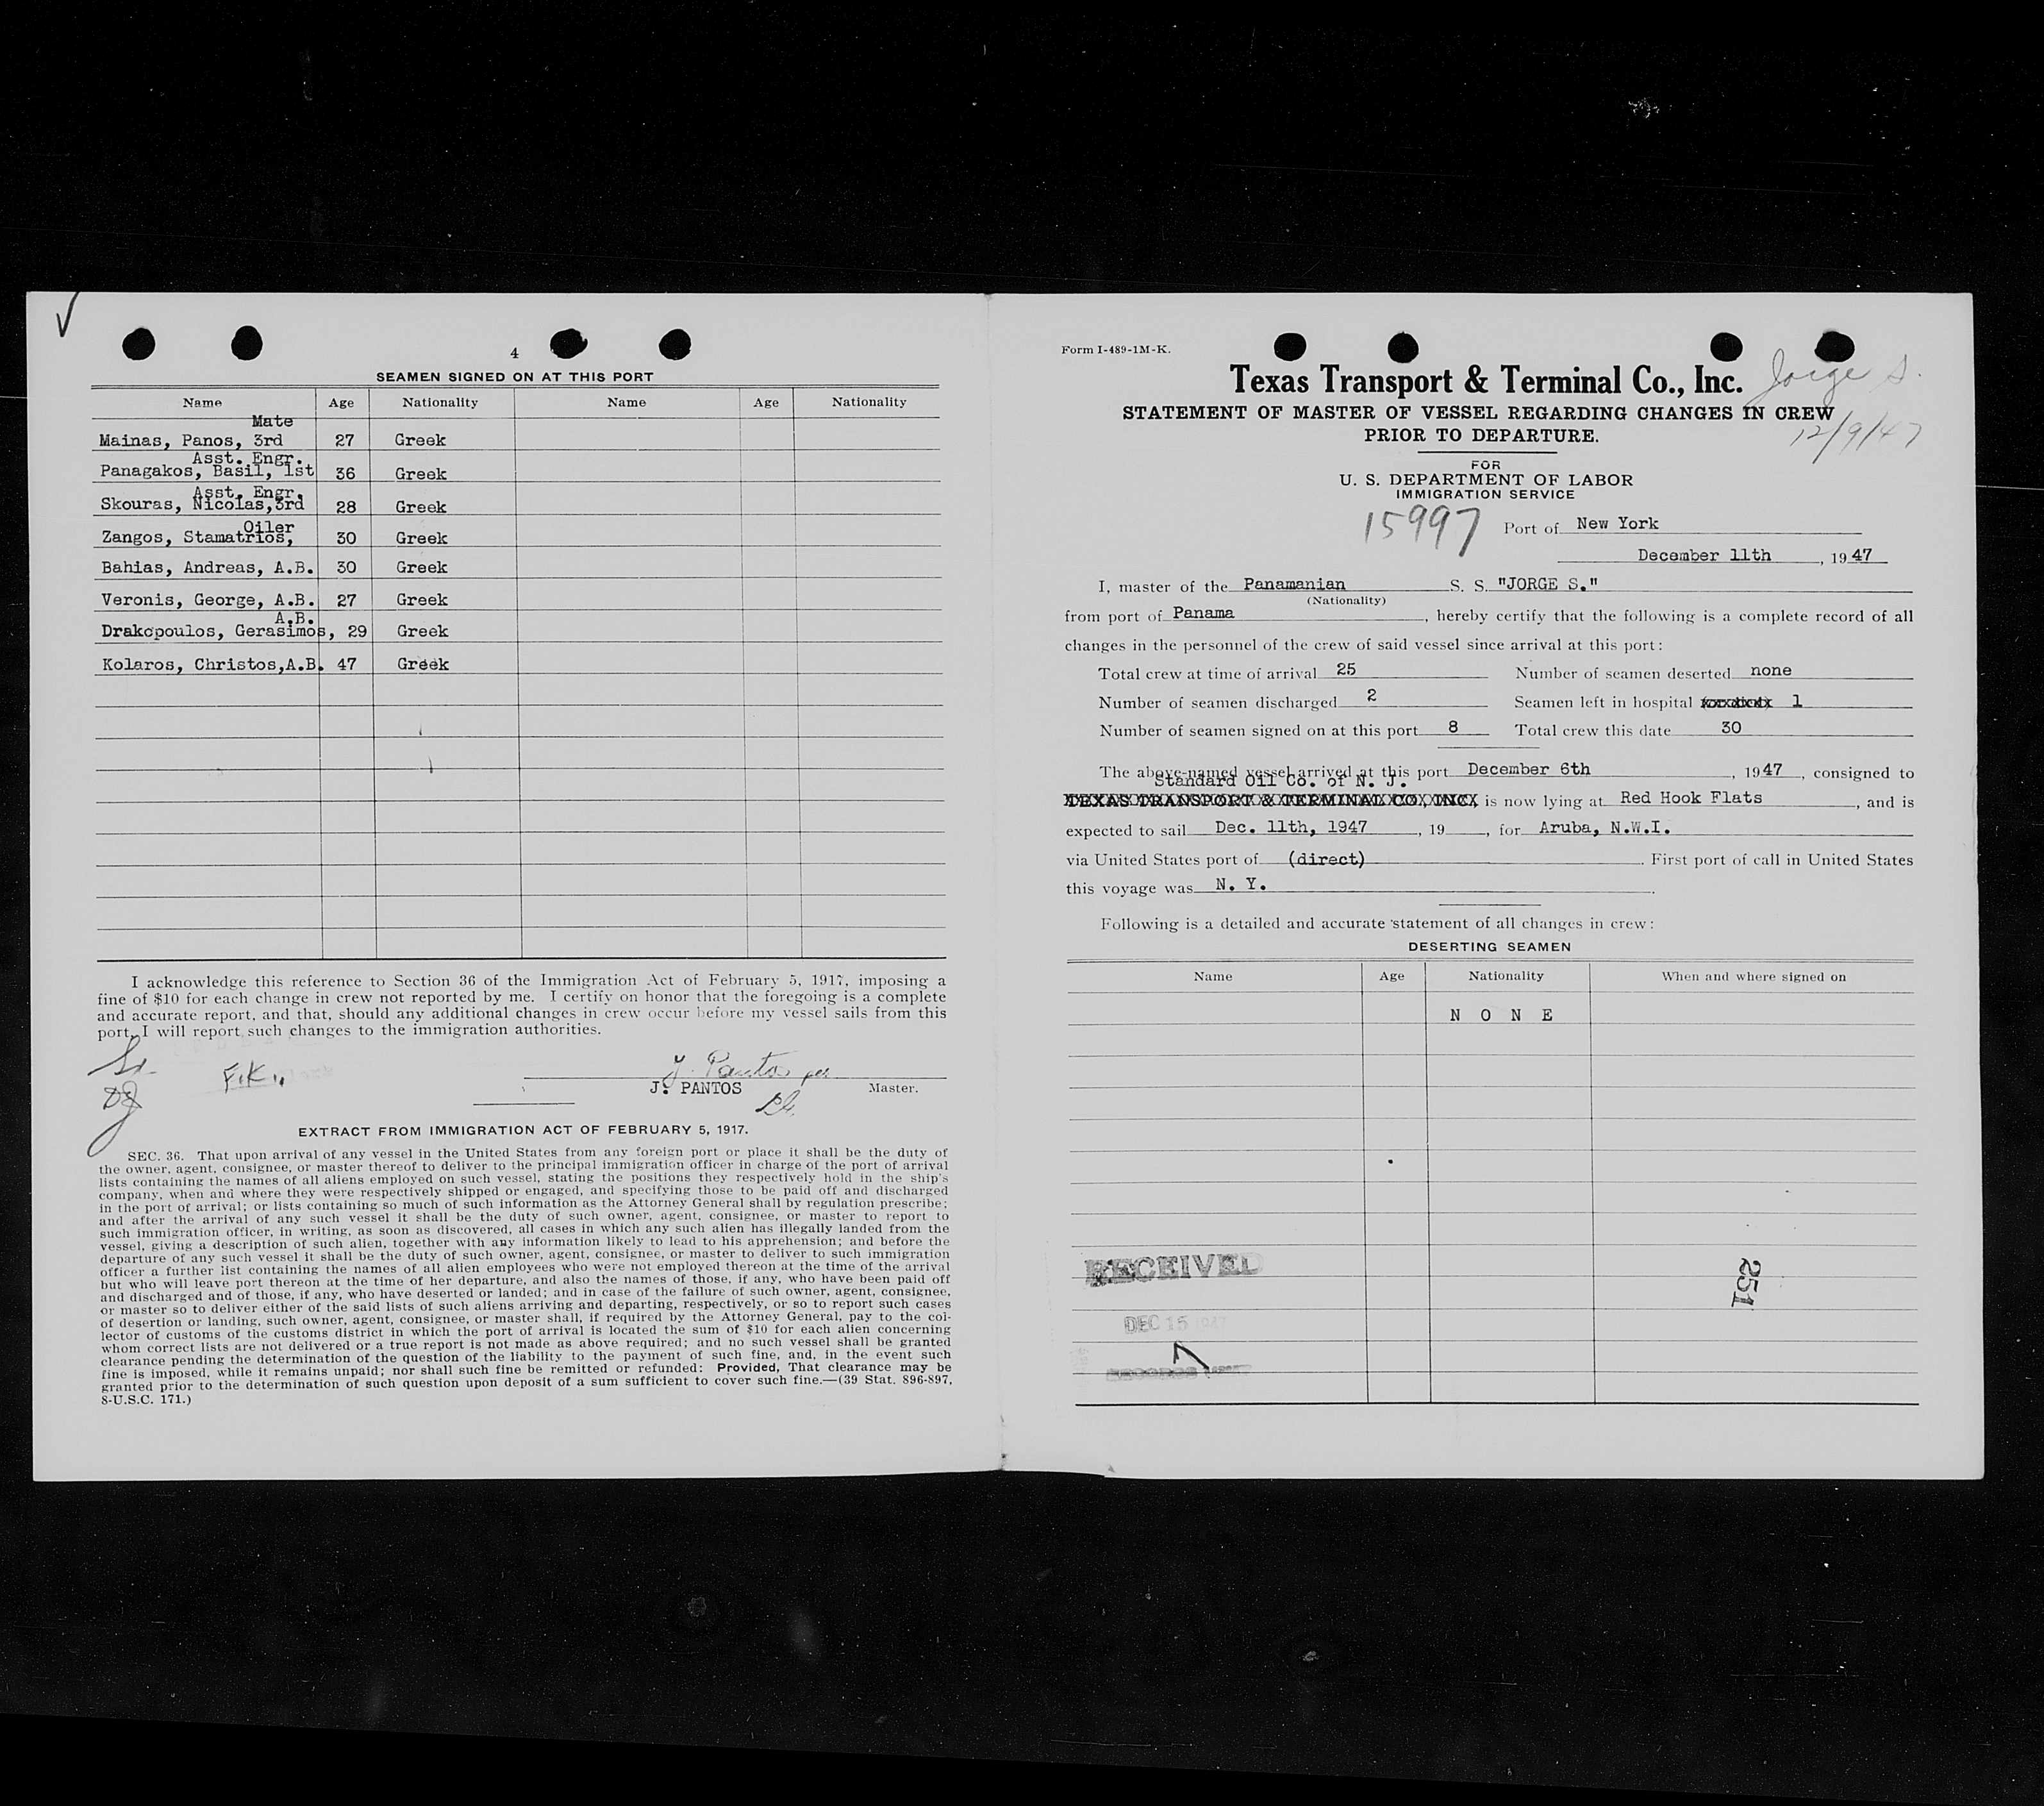 4
SEAMEN SIGNED ON AT THIS PORT
Name Age Nationality Name Age Nationality
Mate
Mainas, Panos, 3rd 27 Greek
Asst. Engr.
Panagakos, Basil, 1st 36 Greek
Asst. Engr.
Skouras, Nicolas,3rd 28 Greek
Oiler
Zangos, Stamatrios, 30 Greek
Bahias, Andreas, A.B. 30 Greek
Veronis, George, A.B. 27 Greek
A.B.
Drakopoulos, Gerasimos, 29 Greek
Kolaros, Christos,A.B. 47 Greek
I acknowledge this reference to Section 36 of the Immigration Act of February 5, 1917, imposing a
fine of $10 for each change in crew not reported by me. I certify on honor that the foregoing is a complete
and accurate report, and that, should any additional changes in crew occur before my vessel sails from this
port, I will report such changes to the immigration authorities.
F.K.
J. Pantos per
J. PANTOS Master.
EXTRACT FROM IMMIGRATION ACT OF FEBRUARY 5, 1917.
SEC. 36. That upon arrival of any vessel in the United States from any foreign port or place it shall be the duty of
the owner, agent, consignee, or master thereof to deliver to the principal immigration officer in charge of the port of arrival
lists containing the names of all aliens employed on such vessel, stating the positions they respectively hold in the ship's
company, when and where they were respectively shipped or engaged, and specifying those to be paid off and discharged
in the port of arrival; or lists containing so much of such information as the Attorney General shall by regulation prescribe;
and after the arrival of any such vessel it shall be the duty of such owner, agent, consignee, or master to report to
such immigration officer, in writing, as soon as discovered, all cases in which any such alien has illegally landed from the
vessel, giving a description of such alien, together with any information likely to lead to his apprehension; and before the
departure of any such vessel it shall be the duty of such owner, agent, consignee, or master to deliver to such immigration
officer a further list containing the names of all alien employees who were not employed thereon at the time of the arrival
but who will leave port thereon at the time of her departure, and also the names of those, if any, who have been paid off
and discharged and of those, if any, who have deserted or landed; and in case of the failure of such owner, agent, consignee,
or master so to deliver either of the said lists of such aliens arriving and departing, respectively, or so to report such cases
of desertion or landing, such owner, agent, consignee, or master shall, if required by the Attorney General, pay to the col-
lector of customs of the customs district in which the port of arrival is located the sum of $10 for each alien concerning
whom correct lists are not delivered or a true report is not made as above required; and no such vessel shall be granted
clearance pending the determination of the question of the liability to the payment of such fine, and, in the event such
fine is imposed, while it remains unpaid; nor shall such fine be remitted or refunded: Provided, That clearance may be
granted prior to the determination of such question upon deposit of a sum sufficient to cover such fine.—(39 Stat. 896-897,
8-U.S.C. 171.)
Form I-489-1M-K.
Texas Transport & Terminal Co., Inc.
Jorge S.
STATEMENT OF MASTER OF VESSEL REGARDING CHANGES IN CREW
PRIOR TO DEPARTURE.
12/9/47
FOR
U. S. DEPARTMENT OF LABOR
IMMIGRATION SERVICE
15997
Port of New York
December 11th, 1947
I, master of the Panamanian S. S. "JORGE S."
(Nationality)
from port of Panama, hereby certify that the following is a complete record of all
changes in the personnel of the crew of said vessel since arrival at this port:
Total crew at time of arrival 25 Number of seamen deserted none
Number of seamen discharged 2 Seamen left in hospital 1
Number of seamen signed on at this port 8 Total crew this date 30
The above-named vessel arrived at this port December 6th, 1947, consigned to
Standard Oil Co. of N. J.
TEXAS TRANSPORT & TERMINAL CO., INC., is now lying at Red Hook Flats, and is
expected to sail Dec. 11th, 1947, 19 , for Aruba, N.W.I.
via United States port of (direct). First port of call in United States
this voyage was N. Y.
Following is a detailed and accurate statement of all changes in crew:
DESERTING SEAMEN
Name Age Nationality When and where signed on
N O N E
RECEIVED
251
DEC 15 1947